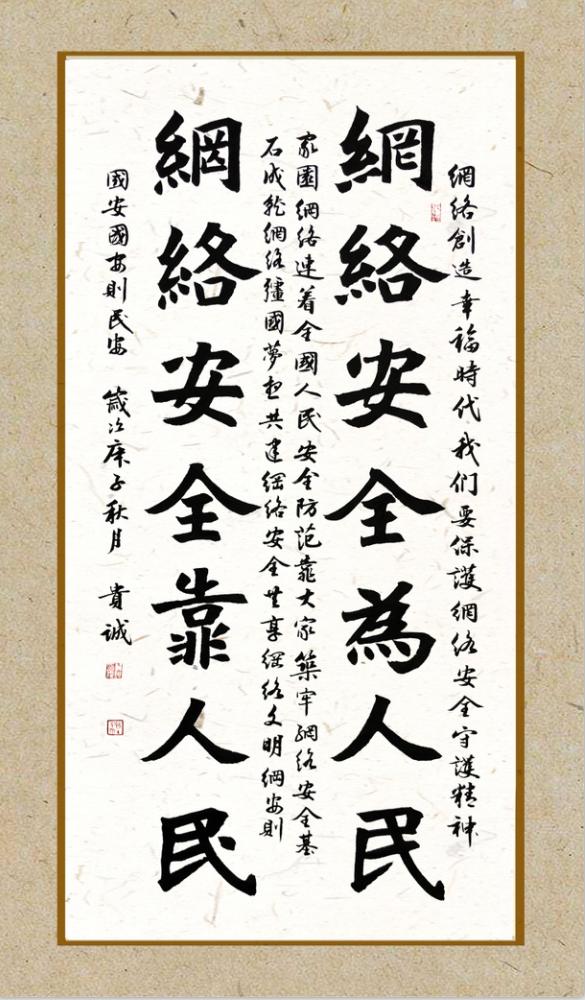 網絡創造幸福時代我们要保護網絡安全守護精神
網絡安全為人民
家園網絡連着全國人民安全防范靠大家築牢網絡安全基
石成就網絡疆國夢想共建網絡安全共享網絡文明網安則
網絡安全靠人民
國安國安則民安 歲次庚子秋月 貴誠